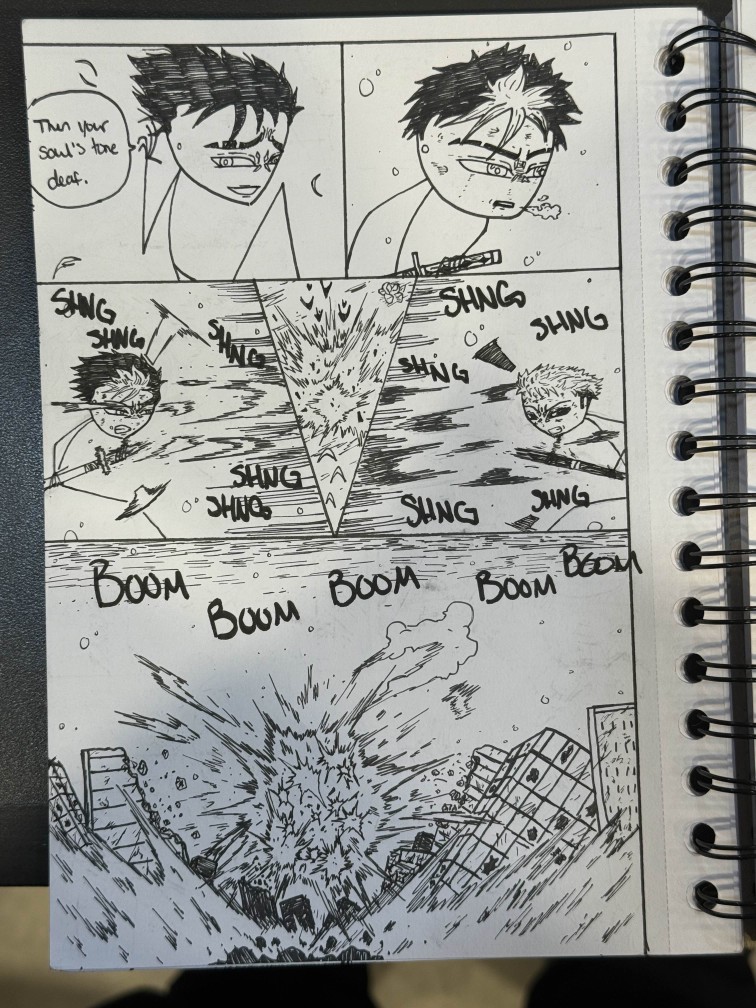 Then your
soul's tone
deaf.
SHNG
SHNG
SHNG
SHNG
SHNG
SHNG
SHNG
SHNG
SHNG
SHNG
BOOM
BOOM
BOOM
BOOM
BOOM